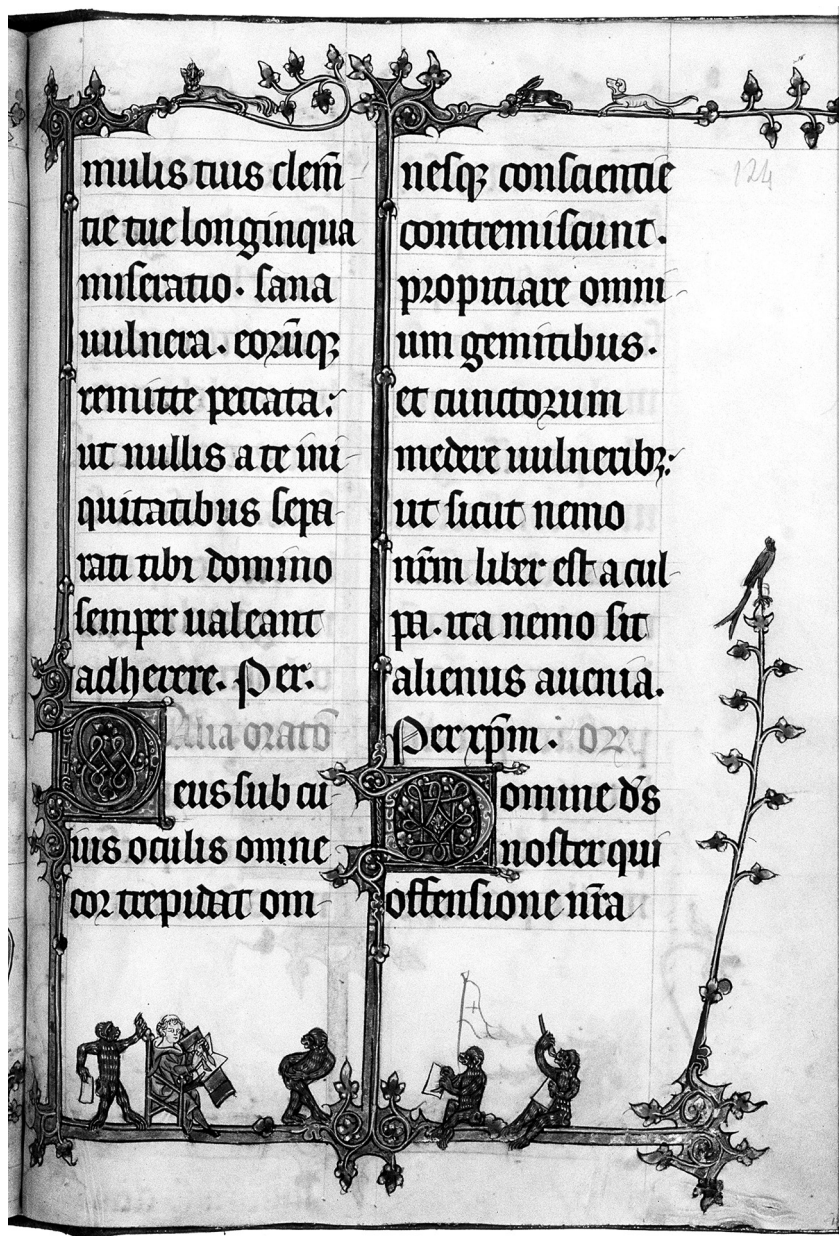 mulis tuis clem̃
tie tue longinqua
miseratio. sana
uulnera. eorũq;
remitte peccata:
ut nullis a te ini
quitatibus sepa
rati tibi domino
semper ualeant
adherere. Per.
Alia oratõ
Deus sub cu
ius oculis omne
cor trepidat om
nesq; conscientie
contremiscunt.
propitiare omni
um gemitibus.
et cunctorum
medere uulnerib;:
ut sicut nemo
nr̃m liber est a cul
pa. ita nemo sit
alienus a uenia.
Per xp̃m. or̃
Domine d̃s
noster qui
offensione nr̃a
124